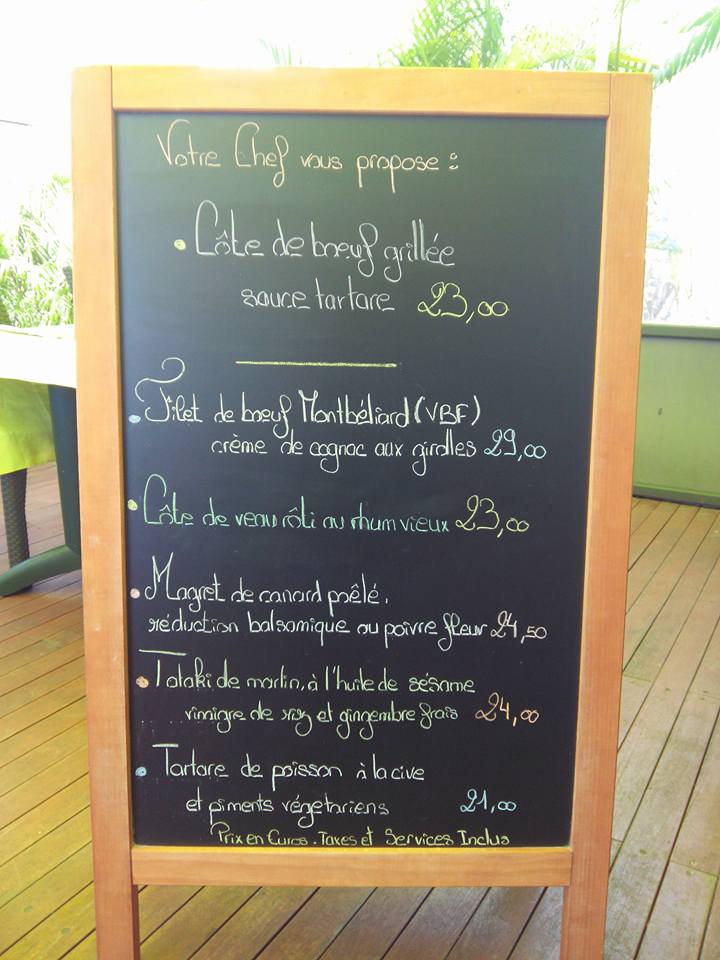 Votre Chef vous propose :
• Côte de bœuf grillée
sauce tartare 23,00
• Filet de bœuf Montbéliard (VBF)
crème de cognac aux girolles 29,00
• Côte de veau rôti au rhum vieux 23,00
• Magret de canard poêlé,
réduction balsamique au poivre fleur 24,50
• Tataki de marlin, à l'huile de sésame
vinaigre de riz et gingembre frais 24,00
• Tartare de poisson à la cive
et piments végetariens 21,00
Prix en Euros. Taxes et Services Inclus